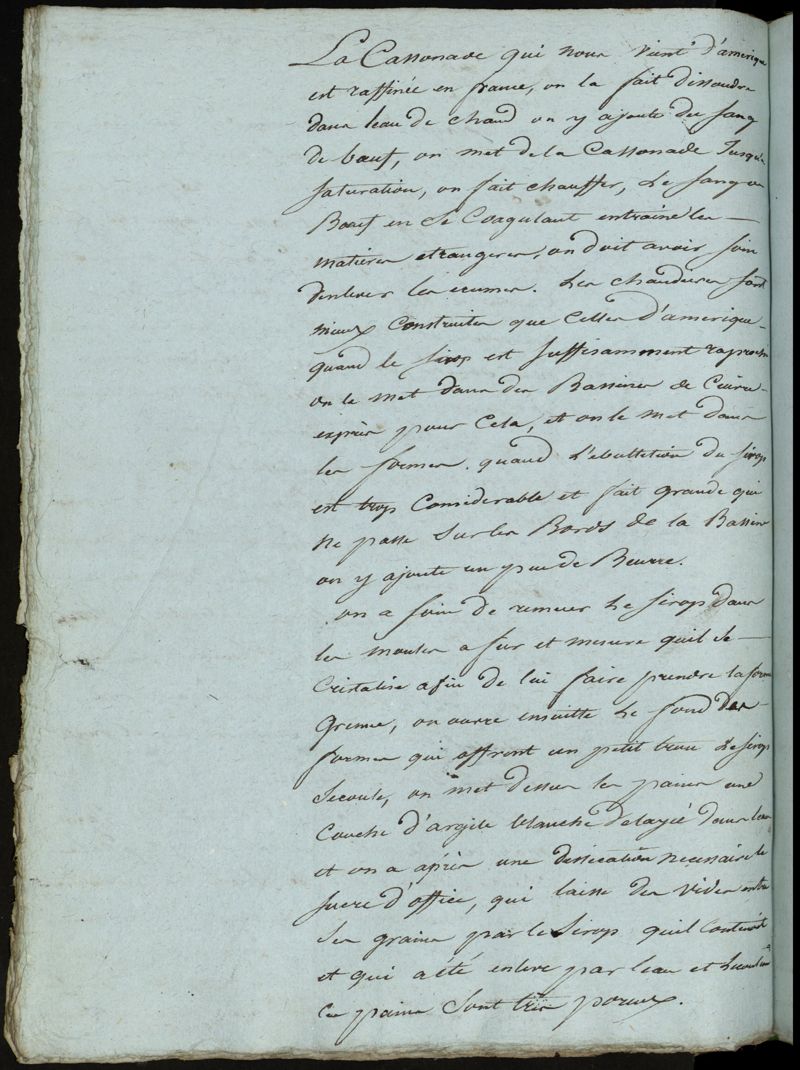 La Cassonade qui nous vient d'amerique
est raffinée en france, on la fait dissoudre
dans leau de chaud on y ajoute du sang
de bœuf, on met de la Cassonade Jusqu'a
saturation, on fait chauffer, Le sang de
Bœuf en se Coagulant entraine les
matieres etrangeres, on doit avoir soin
denlever les ecumes. Les chaudieres sont
mieux Construites que Celles d'amerique
quand le sirop est suffisamment raproché
on le met dans des Bassines de Cuivre
exprès pour Cela, et on le met dans
les formes. quand L'ebullition du sirop
est trop Considerable et fait grande qui
ne passe sur les Bords de la Bassine
on y ajoute un peu de Beurre.
on a soin de remuer Le sirop dans
les moules a fur et mesure quil se
Cristalise afin de lui faire prendre la forme
Grenue, on ouvre ensuitte Le fond des
formes qui offrent un petit trou Le sirop
secoule, on met dessus les pains une
Couche d'argile blanche delayée dans leau
et on a après une dissication necessaire le
sucre d'office, qui laisse des vides entre
Ses grains par le Sirop quil Contenoit
et qui a été enlevé par leau et
Ces pains sont très poreux.